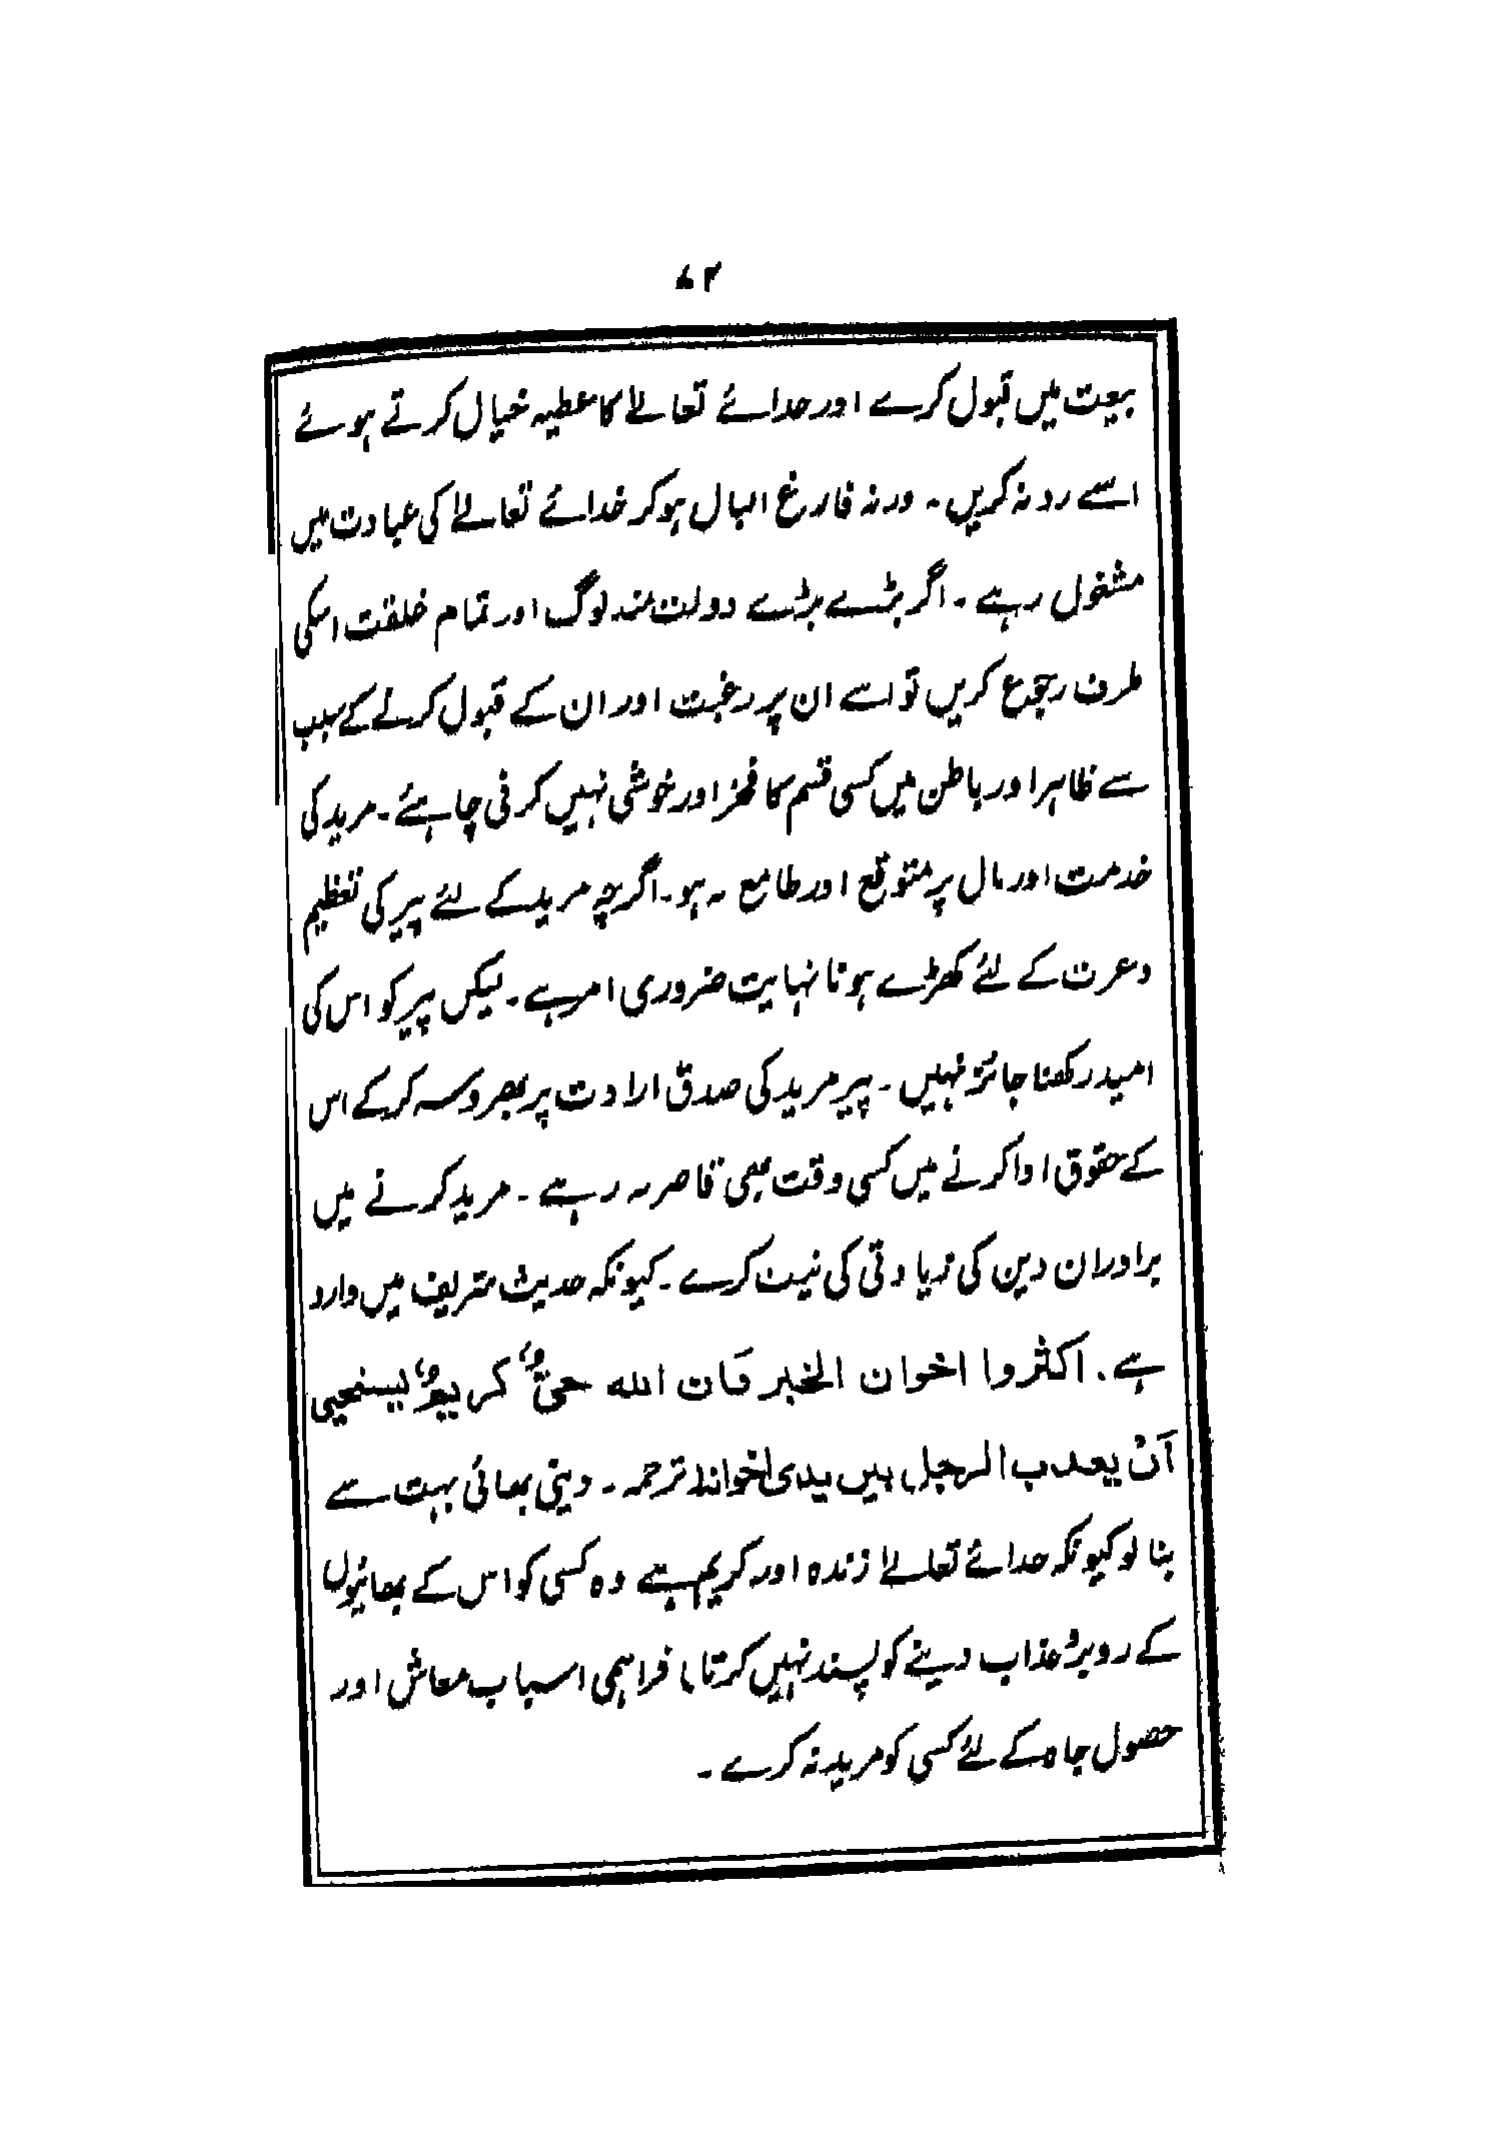 بیعت میں قبول کرے اور خدائے تعالےٰ کا عطیہ خیال کرتے ہوئے
اسے رد نہ کریں۔ ورنہ فارغ البال ہوکر خدائے تعالےٰ کی عبادت میں
مشغول رہے۔ اگر بڑے بڑے دولت مند لوگ اور تمام خلقت اسکی
طرف رجوع کریں تو اسے ان پر رغبت اور ان کے قبول کرنے کے سبب
سے ظاہر اور باطن میں کسی قسم کا فخر اور خوشی نہیں کرنی چاہئے۔ مرید کی
خدمت اور مال پر متوقع اور طامع نہ ہو۔ اگرچہ مرید کے لئے پیر کی تعظیم
و عزت کے لئے کھڑے ہونا نہایت ضروری امر ہے۔ لیکن پیر کو اس کی
امید رکھنا جائز نہیں۔ پیر مرید کی صدق ارادت پر بھروسہ کرکے اس
کے حقوق ادا کرنے میں کسی وقت بھی قاصر نہ رہے۔ مرید کرنے میں
برادران دین کی زیادتی کی نیت کرے۔ کیونکہ حدیث شریف میں وارد
ہے۔ اکثروا اخوان الخیر فان اللہ حیٌّ کریمٌ یستحیی
اَنْ یعذب الرجل بین یدی اخوانہ ترجمہ۔ دینی بھائی بہت سے
بنا لو کیونکہ خدائے تعالےٰ زندہ اور کریم ہے وہ کسی کو اس کے بھائیوں
کے روبرو عذاب دینے کو پسند نہیں کرتا۔ فراہمی اسباب معاش اور
حصول جاہ کے لئے کسی کو مرید نہ کرے۔